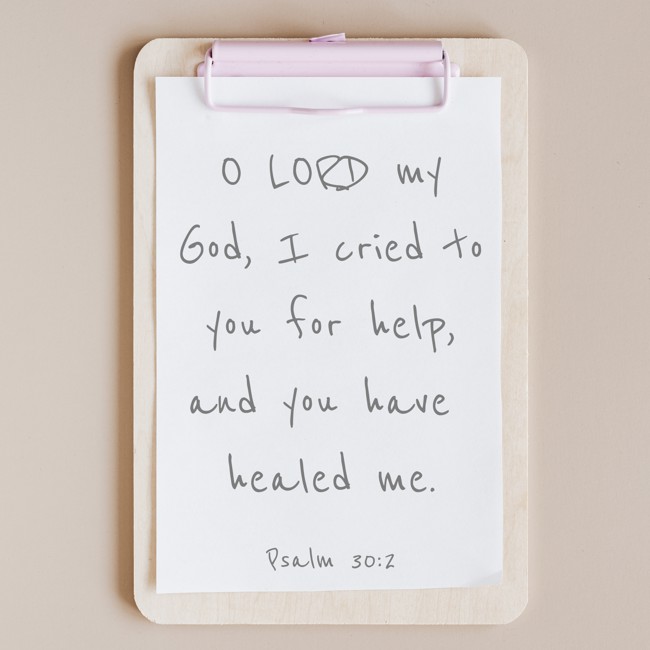 O LORD my
God, I cried to
you for help,
and you have
healed me.
Psalm 30:2